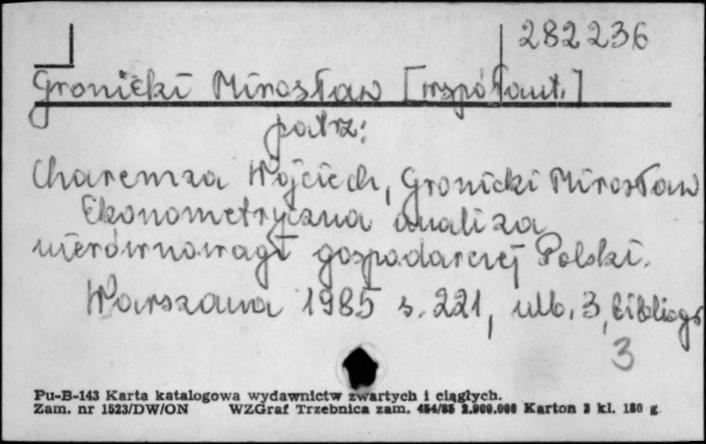 282236
Gronicki Mirosław [współaut.]
patrz:
Charemza Wojciech, Gronicki Mirosław
Ekonometryczna analiza
nierównowagi gospodarczej Polski.
Warszawa 1985 s. 221, nlb. 3, bibliogr
3
Pu-B-143 Karta katalogowa wydawnictw zwartych i ciągłych.
Zam. nr 1523/DW/ON WZGraf Trzebnica zam. 454/85 2.900.000 Karton 3 kl. 180 g